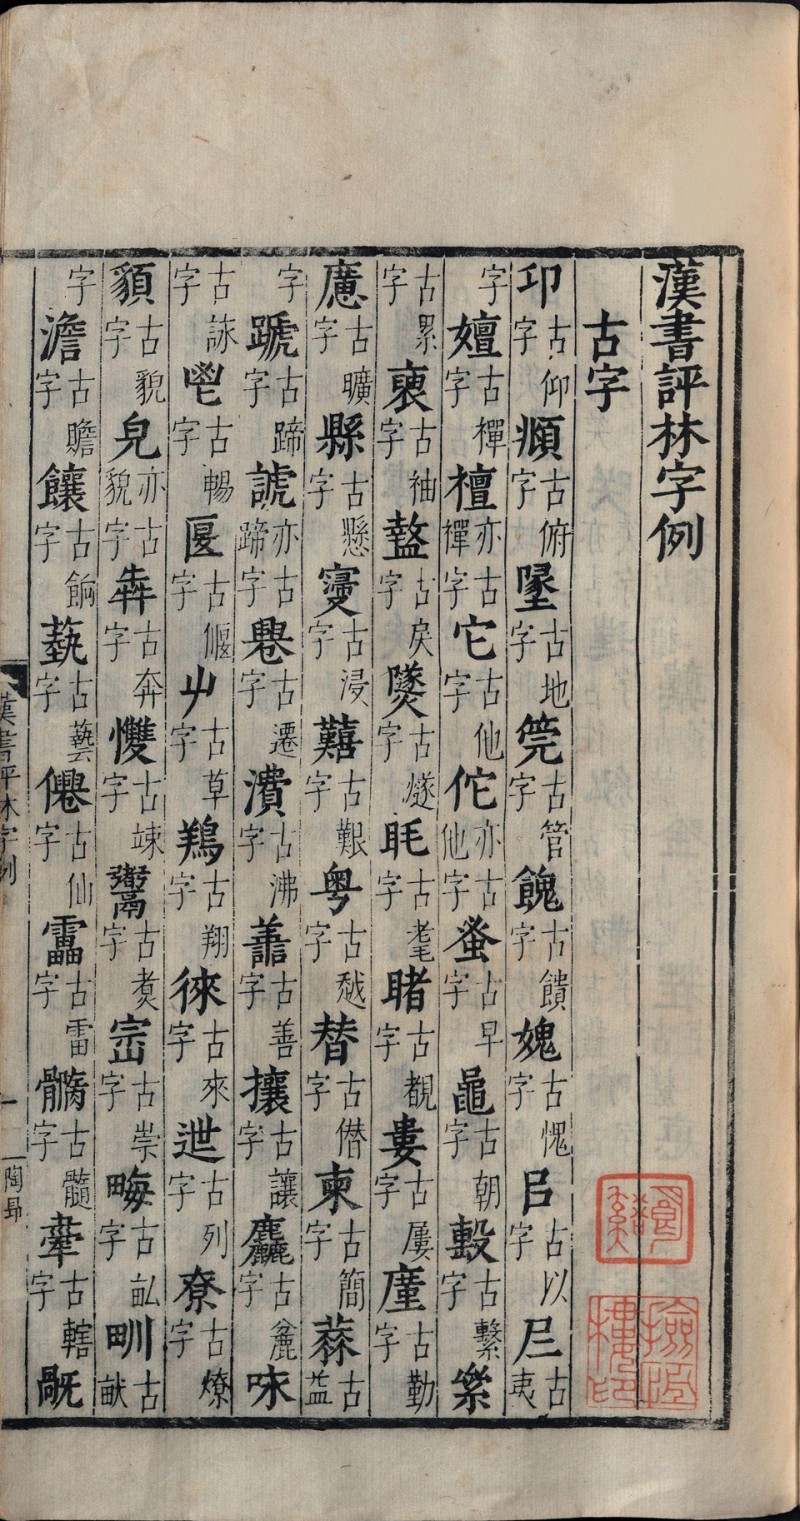 漢書評林字例
古字
卬古仰字 頫古俯字 墬古地字 筦古管字 餽古饋字 媿古愧字 㠯古以字 𡰥古夷
字 嬗古禪字 檀亦古禪字 它古他字 佗亦古他字 蚤古早字 鼂古朝字 古繫字 絫
古累字 褏古袖字 盭古戾字 古燧字 眊古耄字 睹古覩字 婁古屢字 廑古勤字
古曠字 縣古懸字 寖古浸字 囏古艱字 粤古越字 替古僭字 柬古簡字 古益
字 蹏古蹄字 謕亦古蹄字 䙴古遷字 濆古沸字 譱古善字 攘古讓字 麤古麄字 咏
古詠字 鬯古暢字 匽古偃字 屮古草字 鴹古翔字 徠古來字 迣古列字 尞古燎字
䫉古貌字 皃亦古貌字 犇古奔字 㦼古竦字 鬻古煑字 崈古崇字 畮古畝字 甽古畎
字 澹古贍字 饟古餉字 蓺古藝字 僊古仙字 靁古雷字 古髓字 舝古轄字
漢書評林字例 一 陶昂